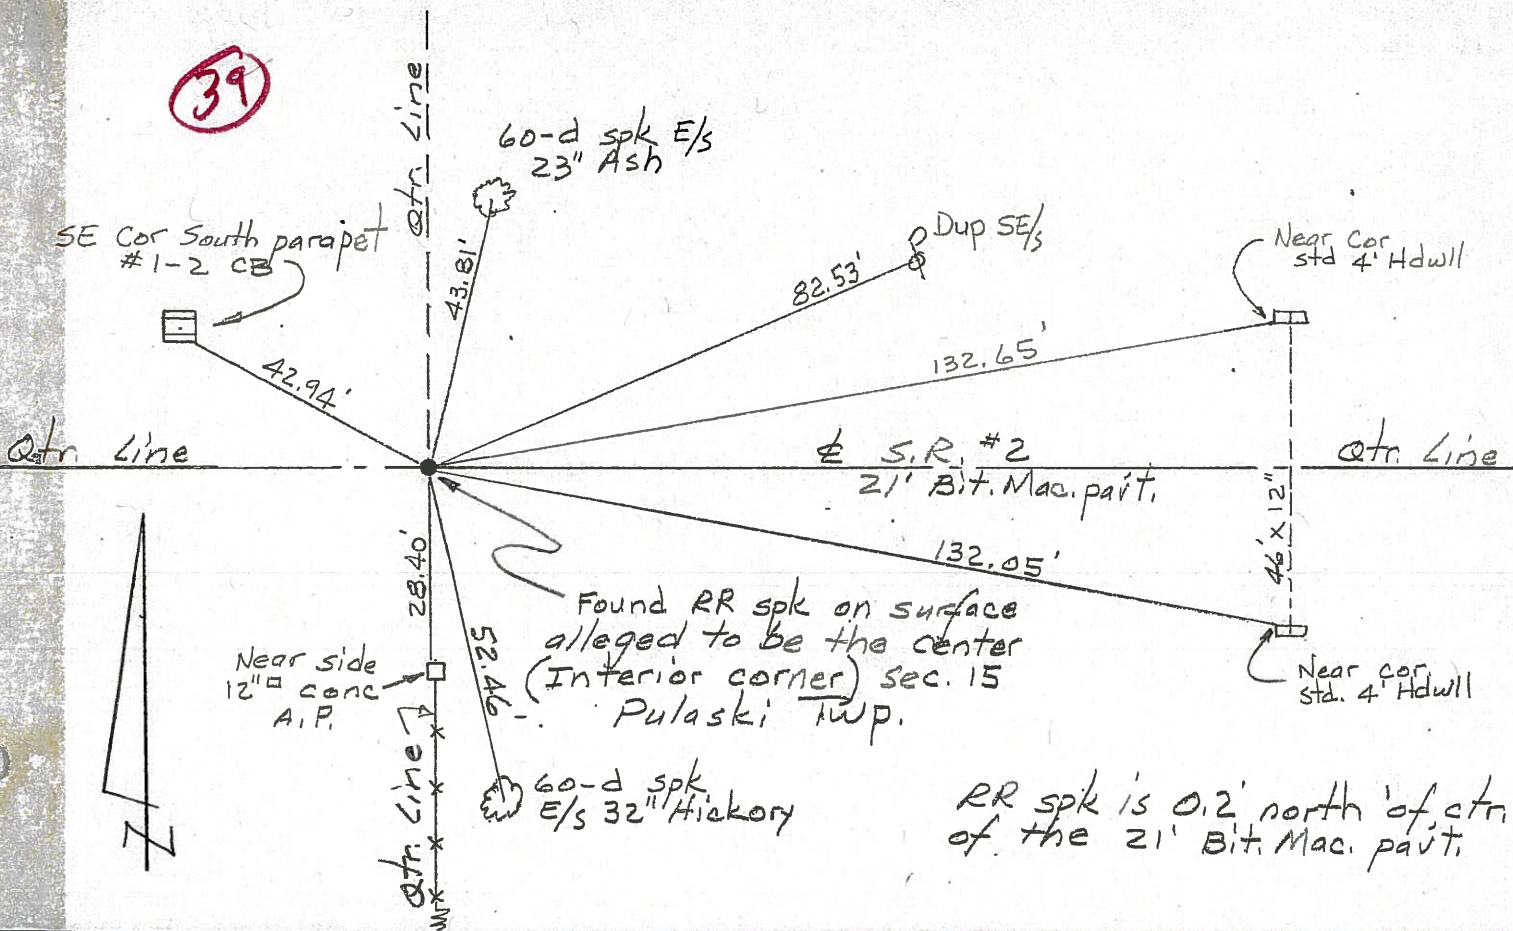 39
Qtr. Line
60-d spk E/s
23" Ash
SE Cor South parapet
#1-2 CB
43.81'
82.53'
Dup SE/s
Near Cor
std 4' Hdwll
42.94'
132.65'
Qtr. Line
℄ S.R. #2
21' Bit. Mac. pav't.
Qtr. Line
46' x 12"
28.40'
132.05'
Found RR spk on surface
alleged to be the center
(Interior corner) sec. 15
Pulaski Twp.
52.46'
Near side
12"□ conc
A.P.
Near cor.
std. 4' Hdwll
Qtr. Line
60-d spk
E/s 32" Hickory
RR spk is 0.2' north of ctr.
of the 21' Bit. Mac. pav't.
N